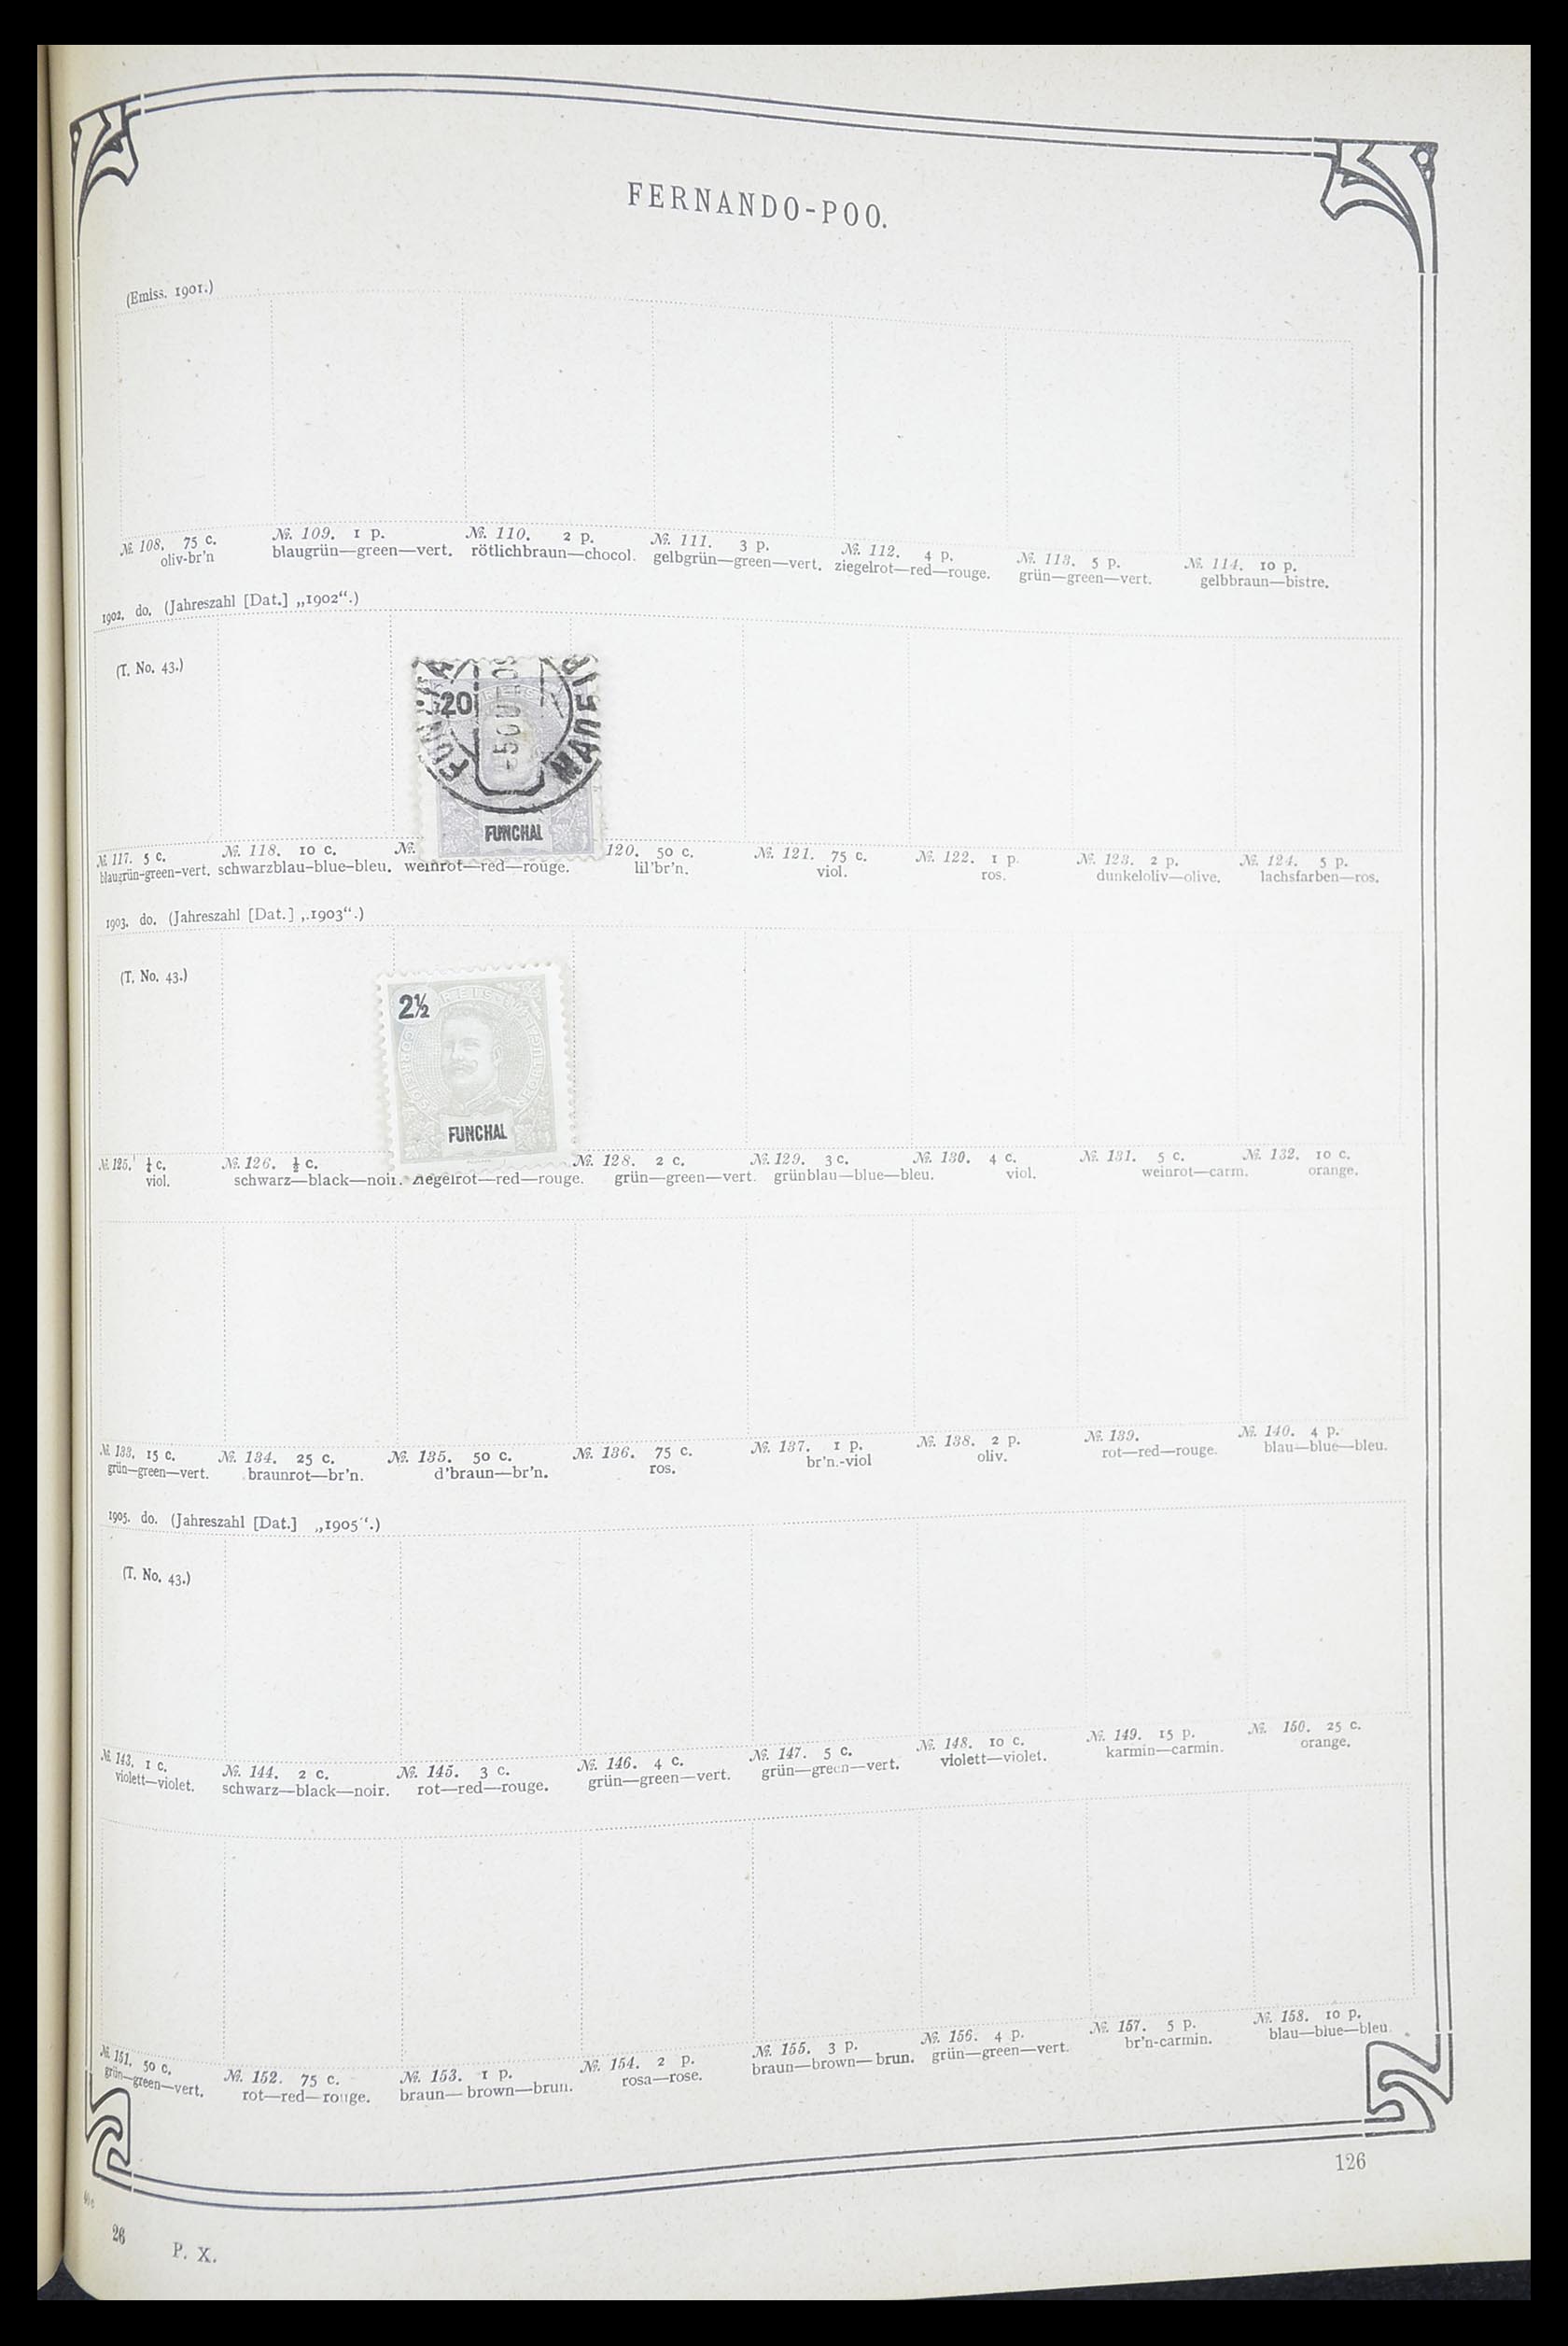 FERNANDO-POO.
(Emiss. 1901.)
№. 108. 75 c. №. 109. 1 p. №. 110. 2 p. №. 111. 3 p. №. 112. 4 p. №. 113. 5 p. №. 114. 10 p.
oliv-br'n blaugrün—green—vert. rötlichbraun—chocol. gelbgrün—green—vert. ziegelrot—red—rouge. grün—green—vert. gelbbraun—bistre.
1902. do. (Jahreszahl [Dat.] „1902“.)
(T. No. 43.)
20
FUNCHAL
№. 117. 5 c. №. 118. 10 c. №. 120. 50 c. №. 121. 75 c. №. 122. 1 p. №. 123. 2 p. №. 124. 5 p.
blaugrün-green-vert. schwarzblau-blue-bleu. weinrot—red—rouge. lil'br'n. viol. ros. dunkeloliv—olive. lachsfarben—ros.
1903. do. (Jahreszahl [Dat.] ,.1903“.)
(T. No. 43.)
2½
CORREIOS
FUNCHAL
№. 125. ¼ c. №. 126. ½ c. №. 128. 2 c. №. 129. 3 c. №. 130. 4 c. №. 131. 5 c. №. 132. 10 c.
viol. schwarz—black—noir. ziegelrot—red—rouge. grün—green—vert. grünblau—blue—bleu. viol. weinrot—carm. orange.
№. 133. 15 c. №. 134. 25 c. №. 135. 50 c. №. 136. 75 c. №. 137. 1 p. №. 138. 2 p. №. 139. №. 140. 4 p.
grün—green—vert. braunrot—br'n. d'braun—br'n. ros. br'n.-viol oliv. rot—red—rouge. blau—blue—bleu.
1905. do. (Jahreszahl [Dat.] „1905“.)
(T. No. 43.)
№. 143. 1 c. №. 144. 2 c. №. 145. 3 c. №. 146. 4 c. №. 147. 5 c. №. 148. 10 c. №. 149. 15 p. №. 150. 25 c.
violett—violet. schwarz—black—noir. rot—red—rouge. grün—green—vert. grün—green—vert. violett—violet. karmin—carmin. orange.
№. 151. 50 c. №. 152. 75 c. №. 153. 1 p. №. 154. 2 p. №. 155. 3 p. №. 156. 4 p. №. 157. 5 p. №. 158. 10 p.
grün—green—vert. rot—red—rouge. braun—brown—brun. rosa—rose. braun—brown—brun. grün—green—vert. br'n-carmin. blau—blue—bleu.
126
26 P. X.